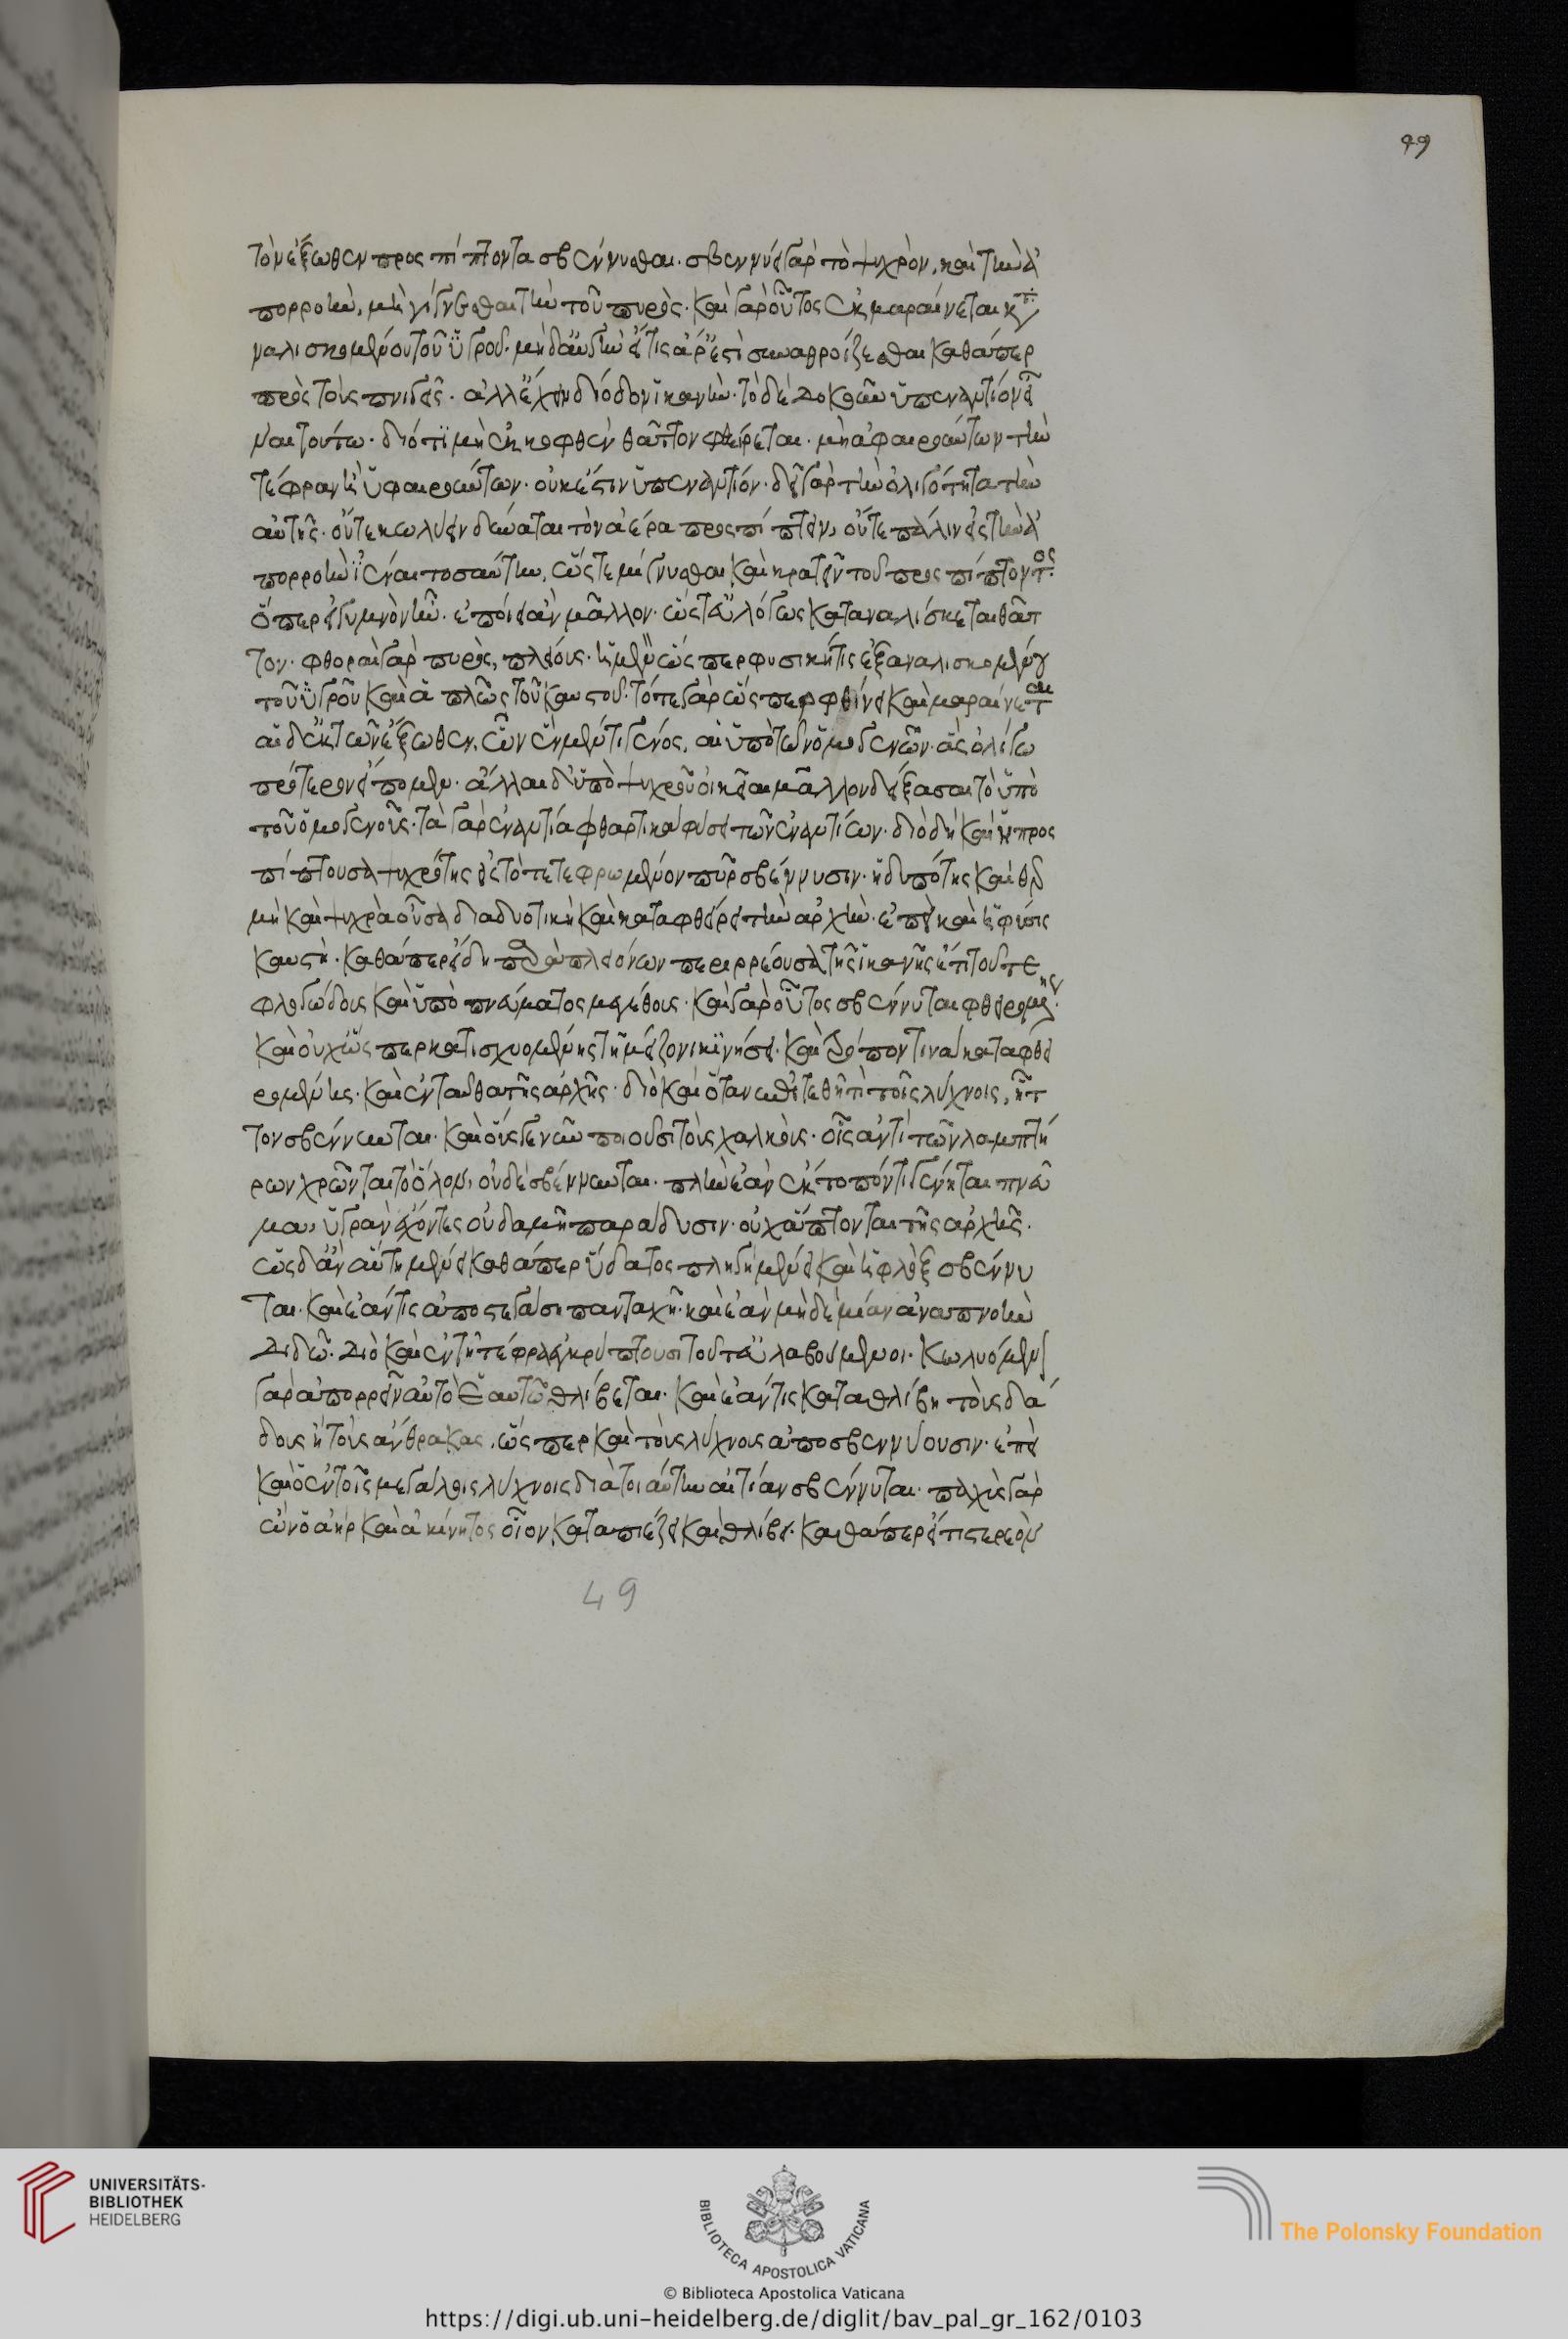 τὸν ἔξωθεν προσπίπτοντα σβέννυσθαι. σβεννύει γὰρ τὸ ψυχρὸν, καὶ τὴν ἀ
πορροὴν, μὴ γίγνεσθαι τὴν τοῦ πυρός. καὶ γὰρ οὗτος ἐκμαραίνεται κατα
ναλισκομένου τοῦ ὑγροῦ. μηδ' αὖ συναθροίζεσθαι καθάπερ
πρὸς τοὺς πνιγεῖς. ἀλλ' ἔχειν δίοδον ἱκανήν. τὸ δὲ δοκοῦν ὑπεναντίον εἶ
ναι τούτω. διότι μὴ ἐγκρυφθὲν θᾶττον φθείρεται. μὴ ἀφαιρούντων τὴν
τέφραν ἢ ὑφαιρούντων. οὐκ ἔστιν ὑπεναντίον. δεῖ γὰρ τὴν ὀλιγότητα τὴν
αὐτῆς. οὔτε κωλύειν δύναται τὸν ἀέρα προσπίπτειν, οὔτε πάλιν εἰς τὴν ἀ
πορροὴν ἰέναι τοσαύτην, ὥστε μίγνυσθαι καὶ κρατεῖν τοῦ προσπίπτοντος
ὅπερ εἰ γυμνὸν ἦν. ἐποίει ἂν μᾶλλον. ὥστ' εὐλόγως καταναλίσκεται θᾶτ
τον. φθοραὶ γὰρ πυρὸς, πλείους. ἡ μὲν ὥσπερ φυσική τις ἐξαναλισκομένου
τοῦ ὑγροῦ καὶ ἁπλῶς τοῦ καυστοῦ. τότε γὰρ ὥσπερ φθίνει καὶ μαραίνεται
αἱ δ' ἐκ τῶν ἔξωθεν. ὧν ἓν μέν τι γένος, αἱ ὑπὸ τῶν ὁμογενῶν. ἃς ὀλίγω
πρότερον εἴπομεν. ἄλλαι δ' ὑπὸ ψυχροῦ οἰκεῖαι μᾶλλον δόξασαι τὸ ὑπὸ
τοῦ ὁμογενοῦς. τὰ γὰρ ἐναντία φθαρτικὰ φύσει τῶν ἐναντίων. διὸ δὴ καὶ ἡ προς
πίπτουσα ψυχρότης εἰς τὸ πετεφρωμένον πῦρ σβέννυσιν. ἡ καὶ θερ
μὴ καὶ ψυχρὰ οὖσα διαδυτικὴ καὶ καταφθείρει τὴν ἀρχήν. ἐπεὶ καὶ ἡ φύσις
καυστή. καθάπερ εἴδη πλειόνων περιρρέουσα τῆς ἱκανῆς ἔτι τοῦ τε
φλογώδους καὶ ὑπὸ πνεύματος μεγέθους. καὶ γὰρ οὗτος σβέννυται φθειρομένης.
καὶ οὐχ ὥσπερ κατισχυομένης τῇ μείζονι κινήσει. καὶ τρόπον τινὰ καταφθει
ρομένης. καὶ ἐνταῦθα τῆς ἀρχῆς. διὸ καὶ ὅταν τεθῆ πὶ τοῖς λύχνοις, ἧτ
τον σβέννυνται. καὶ οὓς γεννῶν ποιοῦσι τοὺς χαλκοῦς. οἷς ἀντὶ τῶν λαμπτή
ρων χρῶνται τὸ ὅλον, οὐδὲ σβέννυνται. πλὴν ἐὰν ἐκ τόπον τι γένηται πνεῦ
μα, ὑγρὰν ἔχοντες οὐδαμῆ παράδυσιν. οὐχ ἅπτονται τῆς ἀρχῆς.
ὡς δ' ἂν αὕτη μένει καθάπερ ὕδατος πληγῇ μένει καὶ ἡ φλὸξ σβέννυ
ται. καὶ ἐάν τις ἀποστεγάση πανταχῆ. καὶ ἐὰν μηδεμίαν ἀναπνοὴν
διδῶ. διὸ καὶ ἐν τῇ τέφρα ἐγκρύπτουσι τοῦτ' εὐλαβούμενοι. κωλυόμεν
γὰρ ἀπορρεῖν αὐτὸ ἑαυτῶ θλίβεται. καὶ ἐάν τις καταθλίβη τοὺς δα
δους ἢ τοὺς ἄνθρακας. ὥσπερ καὶ τοὺς λύχνους ἀποσβεννύουσιν. ἐπεὶ
καὶ ὃ ἐν τοῖς μεγάλοις λύχνοις διὰ τοιαύτην αἰτίαν σβέννυται. παχὺς γὰρ
ὢν ὁ ἀὴρ καὶ ἀκίνητος οἷον καταπιέζει καὶ θλίβει. καθάπερ εἴ τι στερεὸν
49
49
UNIVERSITÄTS-
BIBLIOTHEK
HEIDELBERG
BIBLIOTECA APOSTOLICA VATICANA
The Polonsky Foundation
© Biblioteca Apostolica Vaticana
https://digi.ub.uni-heidelberg.de/diglit/bav_pal_gr_162/0103